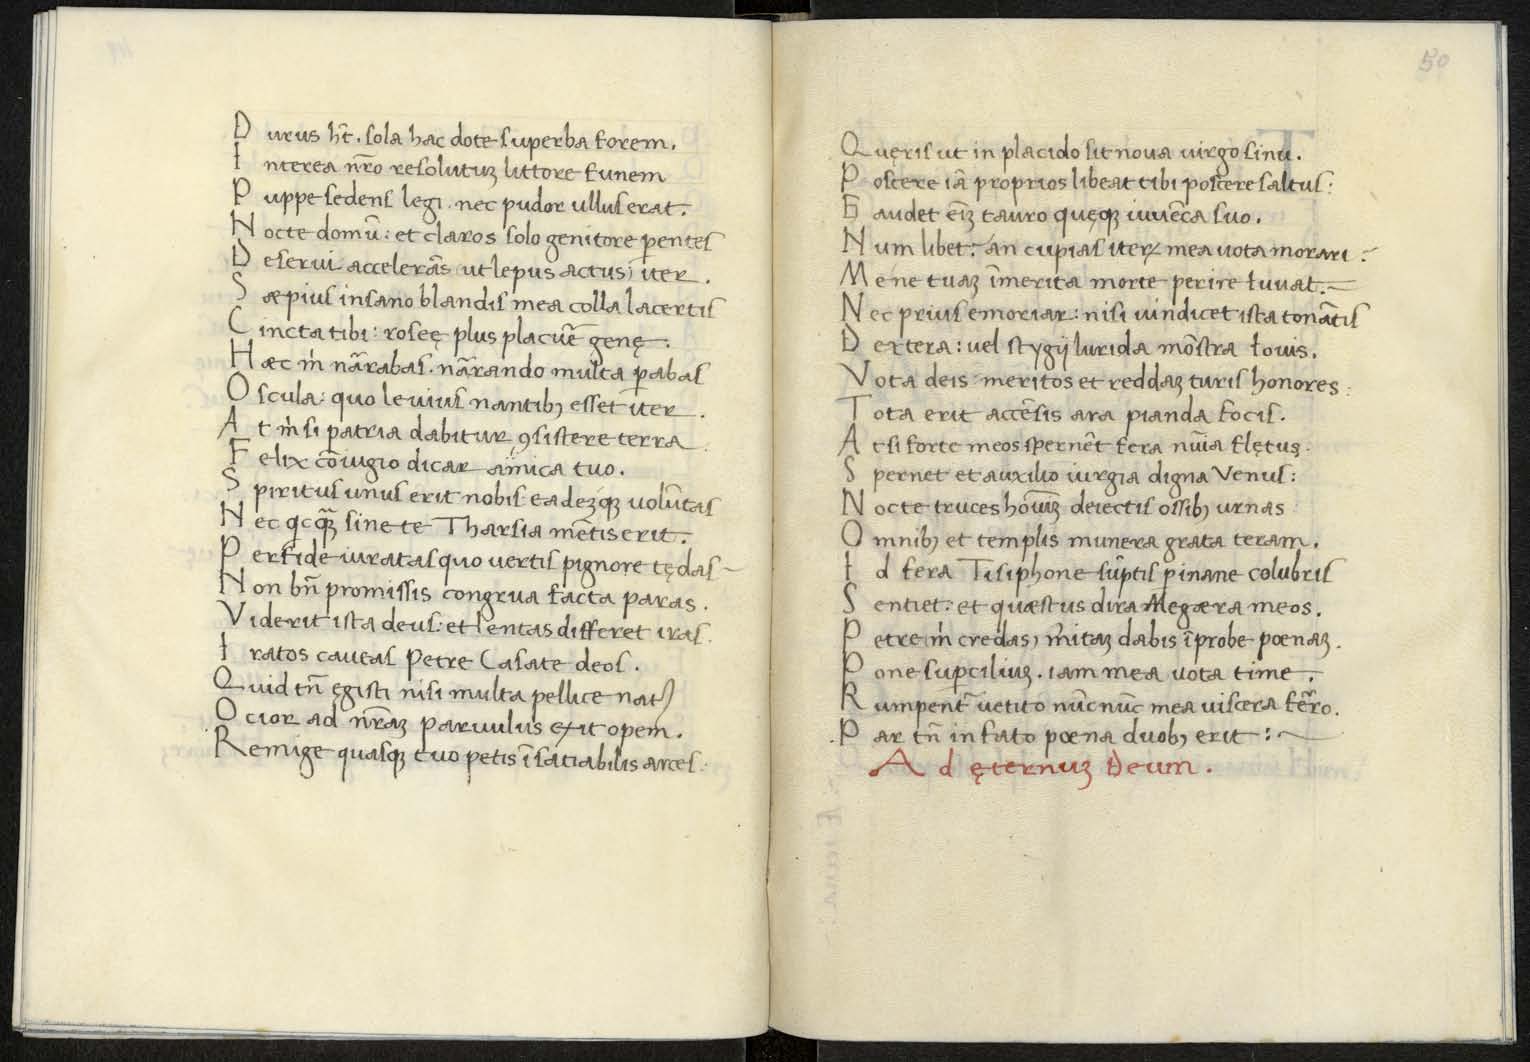 Durus hēt. sola hac dote superba forem.
Interea nr̄o resolutuꝫ littore funem
Puppe sedens legi. nec pudor ullus erat.
Nocte domū: et claros solo genitore ꝑentes
Deserui accelerās (ut lepus actus) iter.
Sæpius insano blandis mea colla lacertis
Cincta tibi: roseę plus placuēr̄ genę.
Hæc m̄ nār̄abas. nār̄ando multa ꝑabas
Oscula: quo levius nantibꝫ esset iter.
At m̄ si patria dabitur ꝯsistere terra
Felix cōiugio dicar amica tuo.
Spiritus unus erit nobis: eadeꝫqꝫ volūtas
Nec qcqꝫ̄ sine te Tharsia mētis erit.
Perfide iuratas quo vertis pignore tędas
Non bn̄ promissis congrua facta paras.
Viderit ista deus: et lentas differet iras.
Iratos caveas Petre Casate deos.
Quid tn̄ ęgisti nisi multa pellice nat9
Ocior ad nr̄aꝫ parvulus exit opem.
Remige quasqꝫ tuo petis īsatiabilis arces.
50
Quęris ut in placido sit nova virgo sinu.
Poscere iā proprios libeat tibi poscere saltus:
Gaudet eīꝫ tauro quęqꝫ iuvēca suo.
Num libet: an cupias iterꝝ mea vota morari?
Mene tuaꝫ īmerita morte perire iuvat.
Nec prius emoriar: nisi vindicet ista tonātis
Dextera: vel stygij lurida mōstra Iovis.
Vota deis meritos et reddaꝫ turis honores:
Tota erit accēsis ara pianda focis.
At si forte meos spernēt fera nūia flętus.
Spernet et auxilio iurgia digna Venus:
Nocte truces hoīuꝫ deiectis ossibꝫ urnas
Omnibꝫ et templis munera grata teram.
Id fera Tisiphone sūptis ꝑ inane colubris
Sentiet: et quæstus dira Megæra meos.
Petre m̄ credas, m̄itaꝫ dabis īprobe pœnaꝫ.
Pone suꝑciliuꝫ. iam mea vota time.
Rumpent̄ vetito nūc nūc mea viscera fēr̄o.
Par tn̄ in fato pœna duobꝫ erit:
Ad ęternuꝫ Deum.